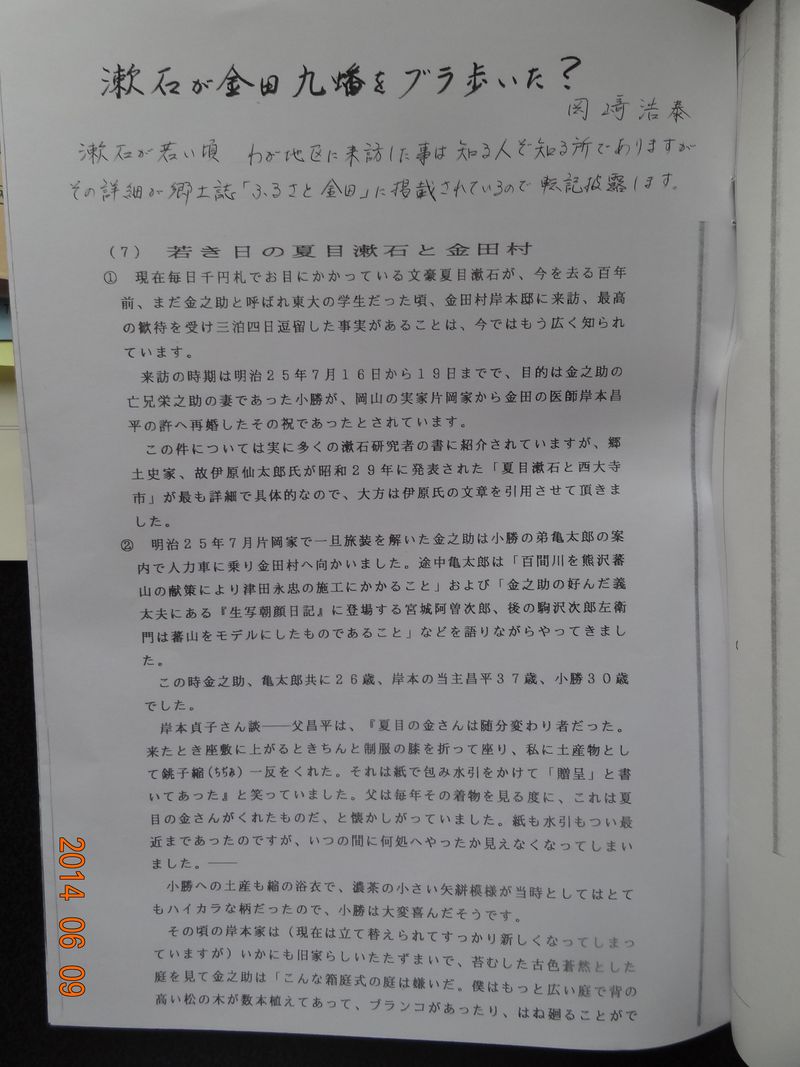 漱石が金田九幡をブラ歩いた?
岡﨑浩泰
漱石が若い頃 わが地区に来訪した事は知る人ぞ知る所でありますが
その詳細が郷土誌「ふるさと金田」に掲載されているので転記披露します。
(7) 若き日の夏目漱石と金田村
① 現在毎日千円札でお目にかかっている文豪夏目漱石が、今を去る百年
前、まだ金之助と呼ばれ東大の学生だった頃、金田村岸本邸に来訪、最高
の歓待を受け三泊四日逗留した事実があることは、今ではもう広く知られ
ています。
来訪の時期は明治25年7月16日から19日までで、目的は金之助の
亡兄栄之助の妻であった小勝が、岡山の実家片岡家から金田の医師岸本昌
平の許へ再婚したその祝であったとされています。
この件については実に多くの漱石研究者の書に紹介されていますが、郷
土史家、故伊原仙太郎氏が昭和29年に発表された「夏目漱石と西大寺
市」が最も詳細で具体的なので、大方は伊原氏の文章を引用させて頂きま
した。
② 明治25年7月片岡家で一旦旅装を解いた金之助は小勝の弟亀太郎の案
内で人力車に乗り金田村へ向かいました。途中亀太郎は「百間川を熊沢蕃
山の献策により津田永忠の施工にかかること」および「金之助の好んだ義
太夫にある『生写朝顔日記』に登場する宮城阿曽次郎、後の駒沢次郎左衛
門は蕃山をモデルにしたものであること」などを語りながらやってきまし
た。
この時金之助、亀太郎共に26歳、岸本の当主昌平37歳、小勝30歳
でした。
岸本貞子さん談――父昌平は、『夏目の金さんは随分変わり者だった。
来たとき座敷に上がるときちんと制服の膝を折って座り、私に土産物とし
て銚子縮(ちぢみ)一反をくれた。それは紙で包み水引をかけて「贈呈」と書
いてあった』と笑っていました。父は毎年その着物を見る度に、これは夏
目の金さんがくれたものだ、と懐かしがっていました。紙も水引もつい最
近まであったのですが、いつの間に何処へやったか見えなくなってしまい
ました。――
小勝への土産も縮の浴衣で、濃茶の小さい矢絣模様が当時としてはとて
もハイカラな柄だったので、小勝は大変喜んだそうです。
その頃の岸本家は(現在は立て替えられてすっかり新しくなってしまっ
ていますが)いかにも旧家らしいたたずまいで、苔むした古色蒼然とした
庭を見て金之助は「こんな箱庭式の庭は嫌いだ。僕はもっと広い庭で背の
高い松の木が数本植えてあって、ブランコがあったり、はね廻ることがで
2014 06 09